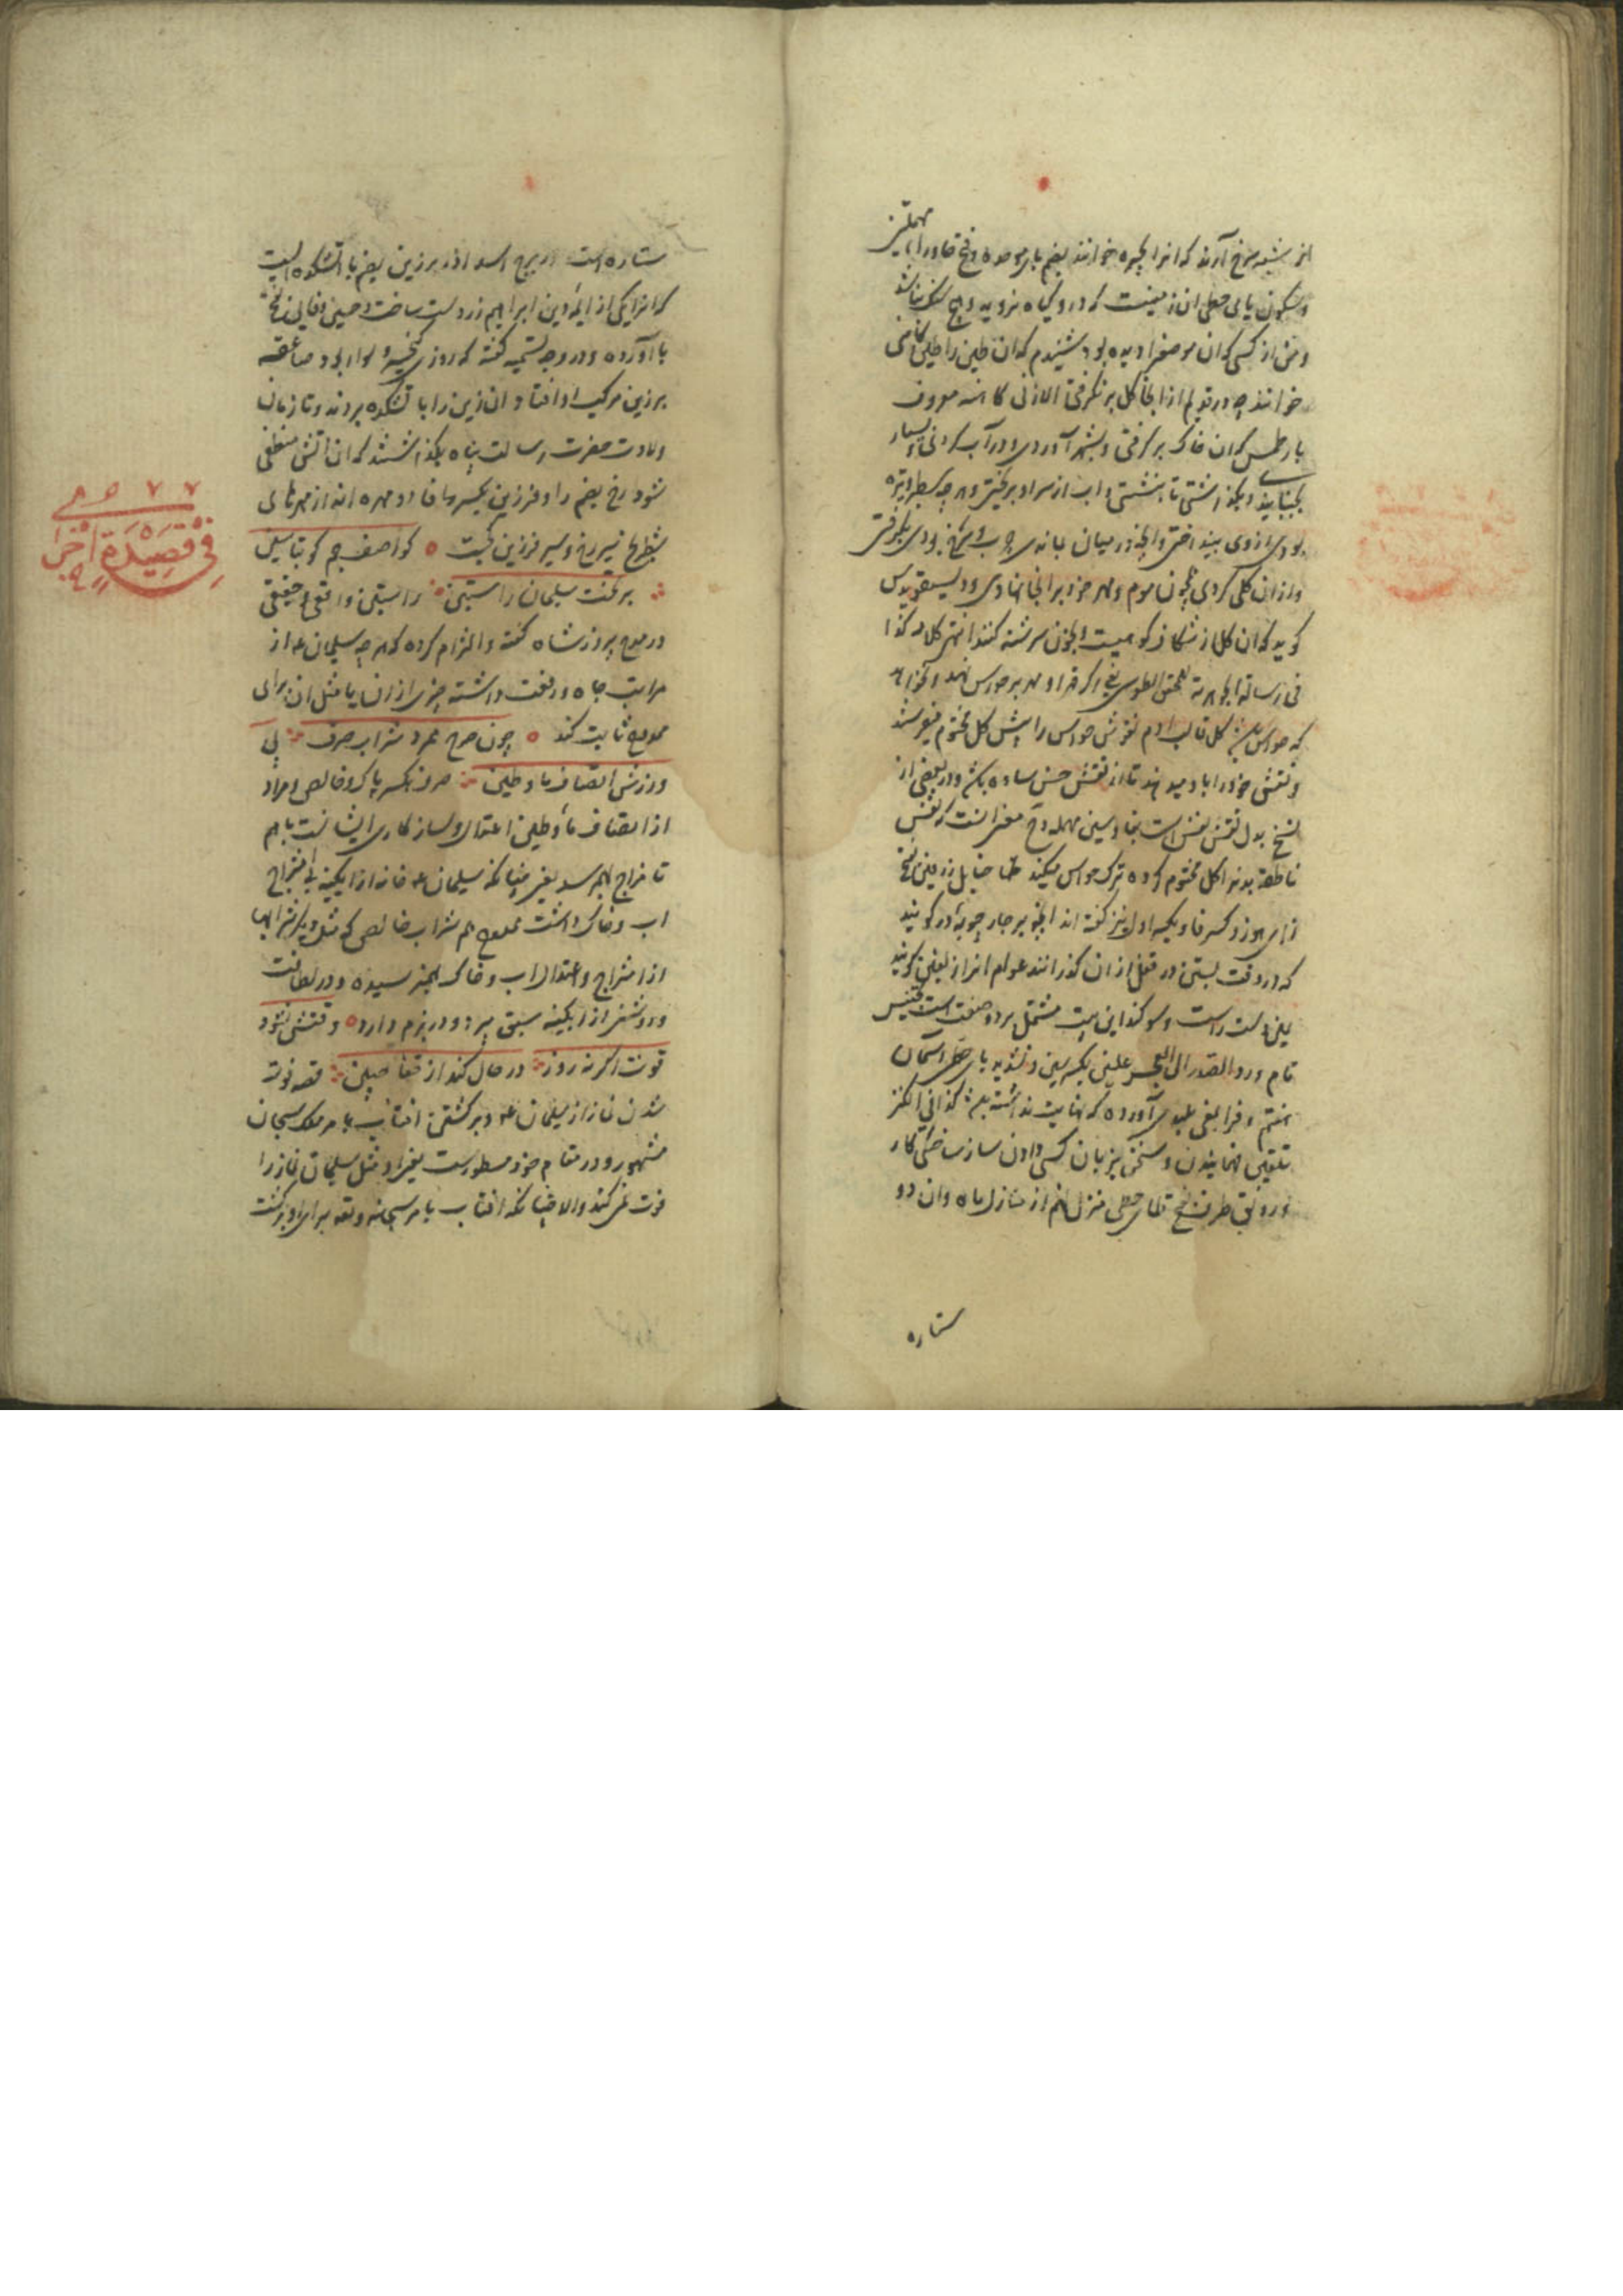 از شیشه سرخ آرند که انرا بحیره خوانند بضم بای موحده و فتح
و سکون یای حطی ان زمینست که درو گیاه نروید و هیچ سنک نباشد
و من از کسی که ان موضع را دیده بود شنیدم که ان طین را طین کاهنی
خوانند چه در قدیم از انجا کل بر نکرفتی الا زنی کاهنه معروف
بارطمس که ان خاک بر گرفتی و بشهر آوردی و در آب کردی و بسیار
بجنبانیدی و بگذاشتی تا بنشستی و اب از سر او بریختی و هرچه سطبر و تیره
بودی ازوی بینداختی و انچه در میان بماندی چرب و شخ بودی بگرفتی
و از ان کلی کردی چون موم و مهر خود بر انجا نهادی و دیسقوریدس
کوید که ان کل از شکاف کوهیست و بخون سرشته کنند انتهی کلامه کذا
فی رسالة الجواهریة للمحقق الطوسی یعنی اکر قهر او مهر بر حواس نهد و خواهد
که حواس کل قالب ادم نقوش حواس را پیش کل مختوم میفرستد
و نقش خود را باد میدهد تا از نقش حس ساده باشد و در بعضی از
نسخ بدل نقش نفس است بفا و سین مهمله و ح معنی انست که نفس
ناطقه بدنرا کل مختوم کرده ترک حواس میکند
زای هوز و کسر فا و بکسر اول نیز کفته اند انچه بر چار چوبه در کوبند
که در وقت بستن در قفل از ان کذرانند عوام انرا زلفین کویند
یمین دست راست و سوکند این بیت مشتمل بر دو صنعت است تجنیس
تام و رد الصدر الی العجز علیین بکسرتین و تشدید یای حطی آسمان
هفتم و فرا بلغی بلندی آورده که نهایت نداشته باشد کذا فی الکنز
تلقین فهمانیدن و سخن بزبان کسی دادن سازست ختلی کار
و رونق طرف بفتح طای حطی منزل نهم از منازل ماه و ان دو
ستاره
ستاره است از برج اسد اذر برزین بضم با اتشکده ایست
که انرا یکی از ایمه دین ابراهیم زردشت ساخت و حسین وفایی بفتح
با آورده و در وجه تسمیه کفته که روزی کیخسرو سوار بود و صاعقه
بر زین مرکب او افتاد و ان زین را با تشکده بردند و تا زمان
ولادت حضرت رسالت پناه بگذاشتند که ان اتش منطفی
شود رخ بضم را و فرزین بکسر فا دو مهره اند از مهرهای
شطرنج سیر رخ و سیر فرزین کجست ه کو اصف جم کو بیا ببین
بر تخت سلیمان راستین راستین واقعی و حقیقی
در مدح پیروز شاه کفته و التزام کرده که هرچه سلیمان عم از
مراتب جاه و رفعت داشته چیزی از ان یا مثل ان برای
ممدوح ثابت کند ه چون صرح ممرد شراب صرف بی
ورزش انصاف ماء و طین صرف بکسر پاک و خالص و مراد
از انصاف ماء و طین اعتدال و سازکاری ایشانست باهم
تا مزاج بهم رسد یعنی چنانکه سلیمان عم خانه از ابکینه بی امتزاج
اب و خاک داشت ممدوح هم شراب خالص که مثل دیکر شرابها
از امتزاج و اعتدال اب و خاک بهم نرسیده و در لطافت
و روشنی از ابکینه سبق میبرد و در بزم دارد ه وقتش نشود
فوت اکر نه روز در حال کند از قفا حنین قصه فوت
شدن نماز از سلیمان عم و برکشتن افتاب بامر ملک سبحان
مشهور و در مقام خود مسطورست یعنی او مثل سلیمان نماز را
فوت نمی کند والا چنانکه افتاب بامر سبحانه و تعه برای او برکشت
۷۷۵۹
فی قصیدة اخری